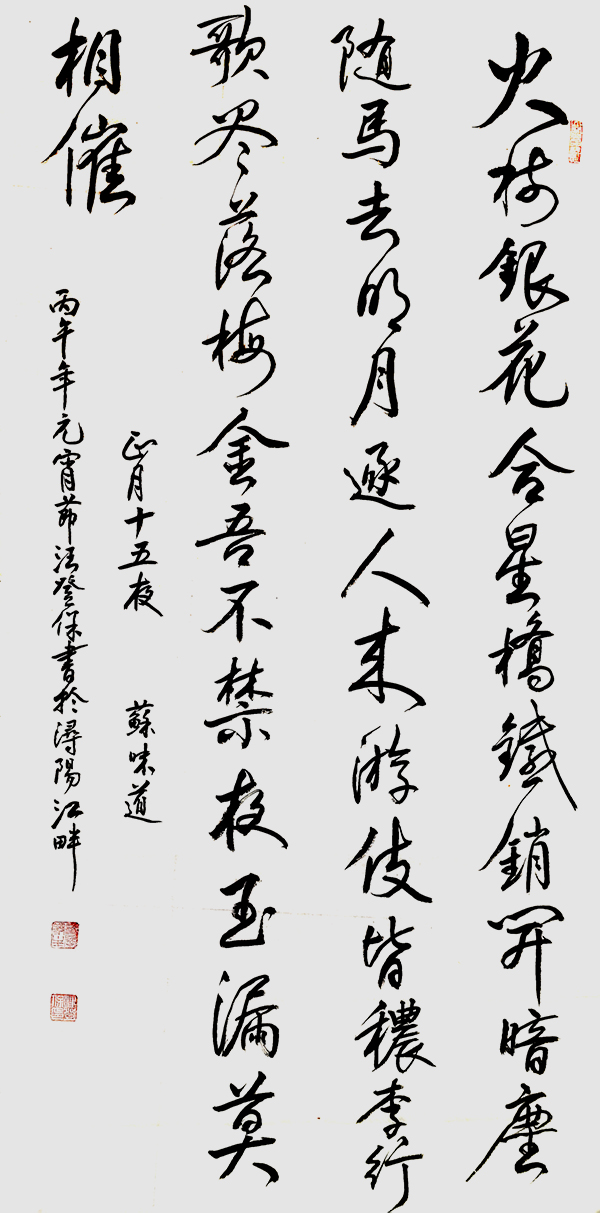 火树銀花合星橋鐵銷開暗塵
随馬去明月逐人来游伎皆穠李行
歌尽落梅金吾不禁夜玉漏莫
相催
正月十五夜 蘇味道
丙午年元宵節汪登保書於潯陽江畔